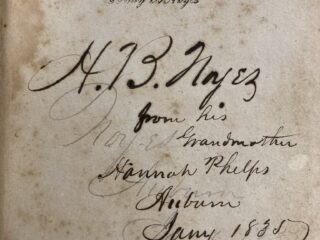 H. B. Noyes
from his
Grandmother
Hannah Phelps
Auburn
Jany 1835